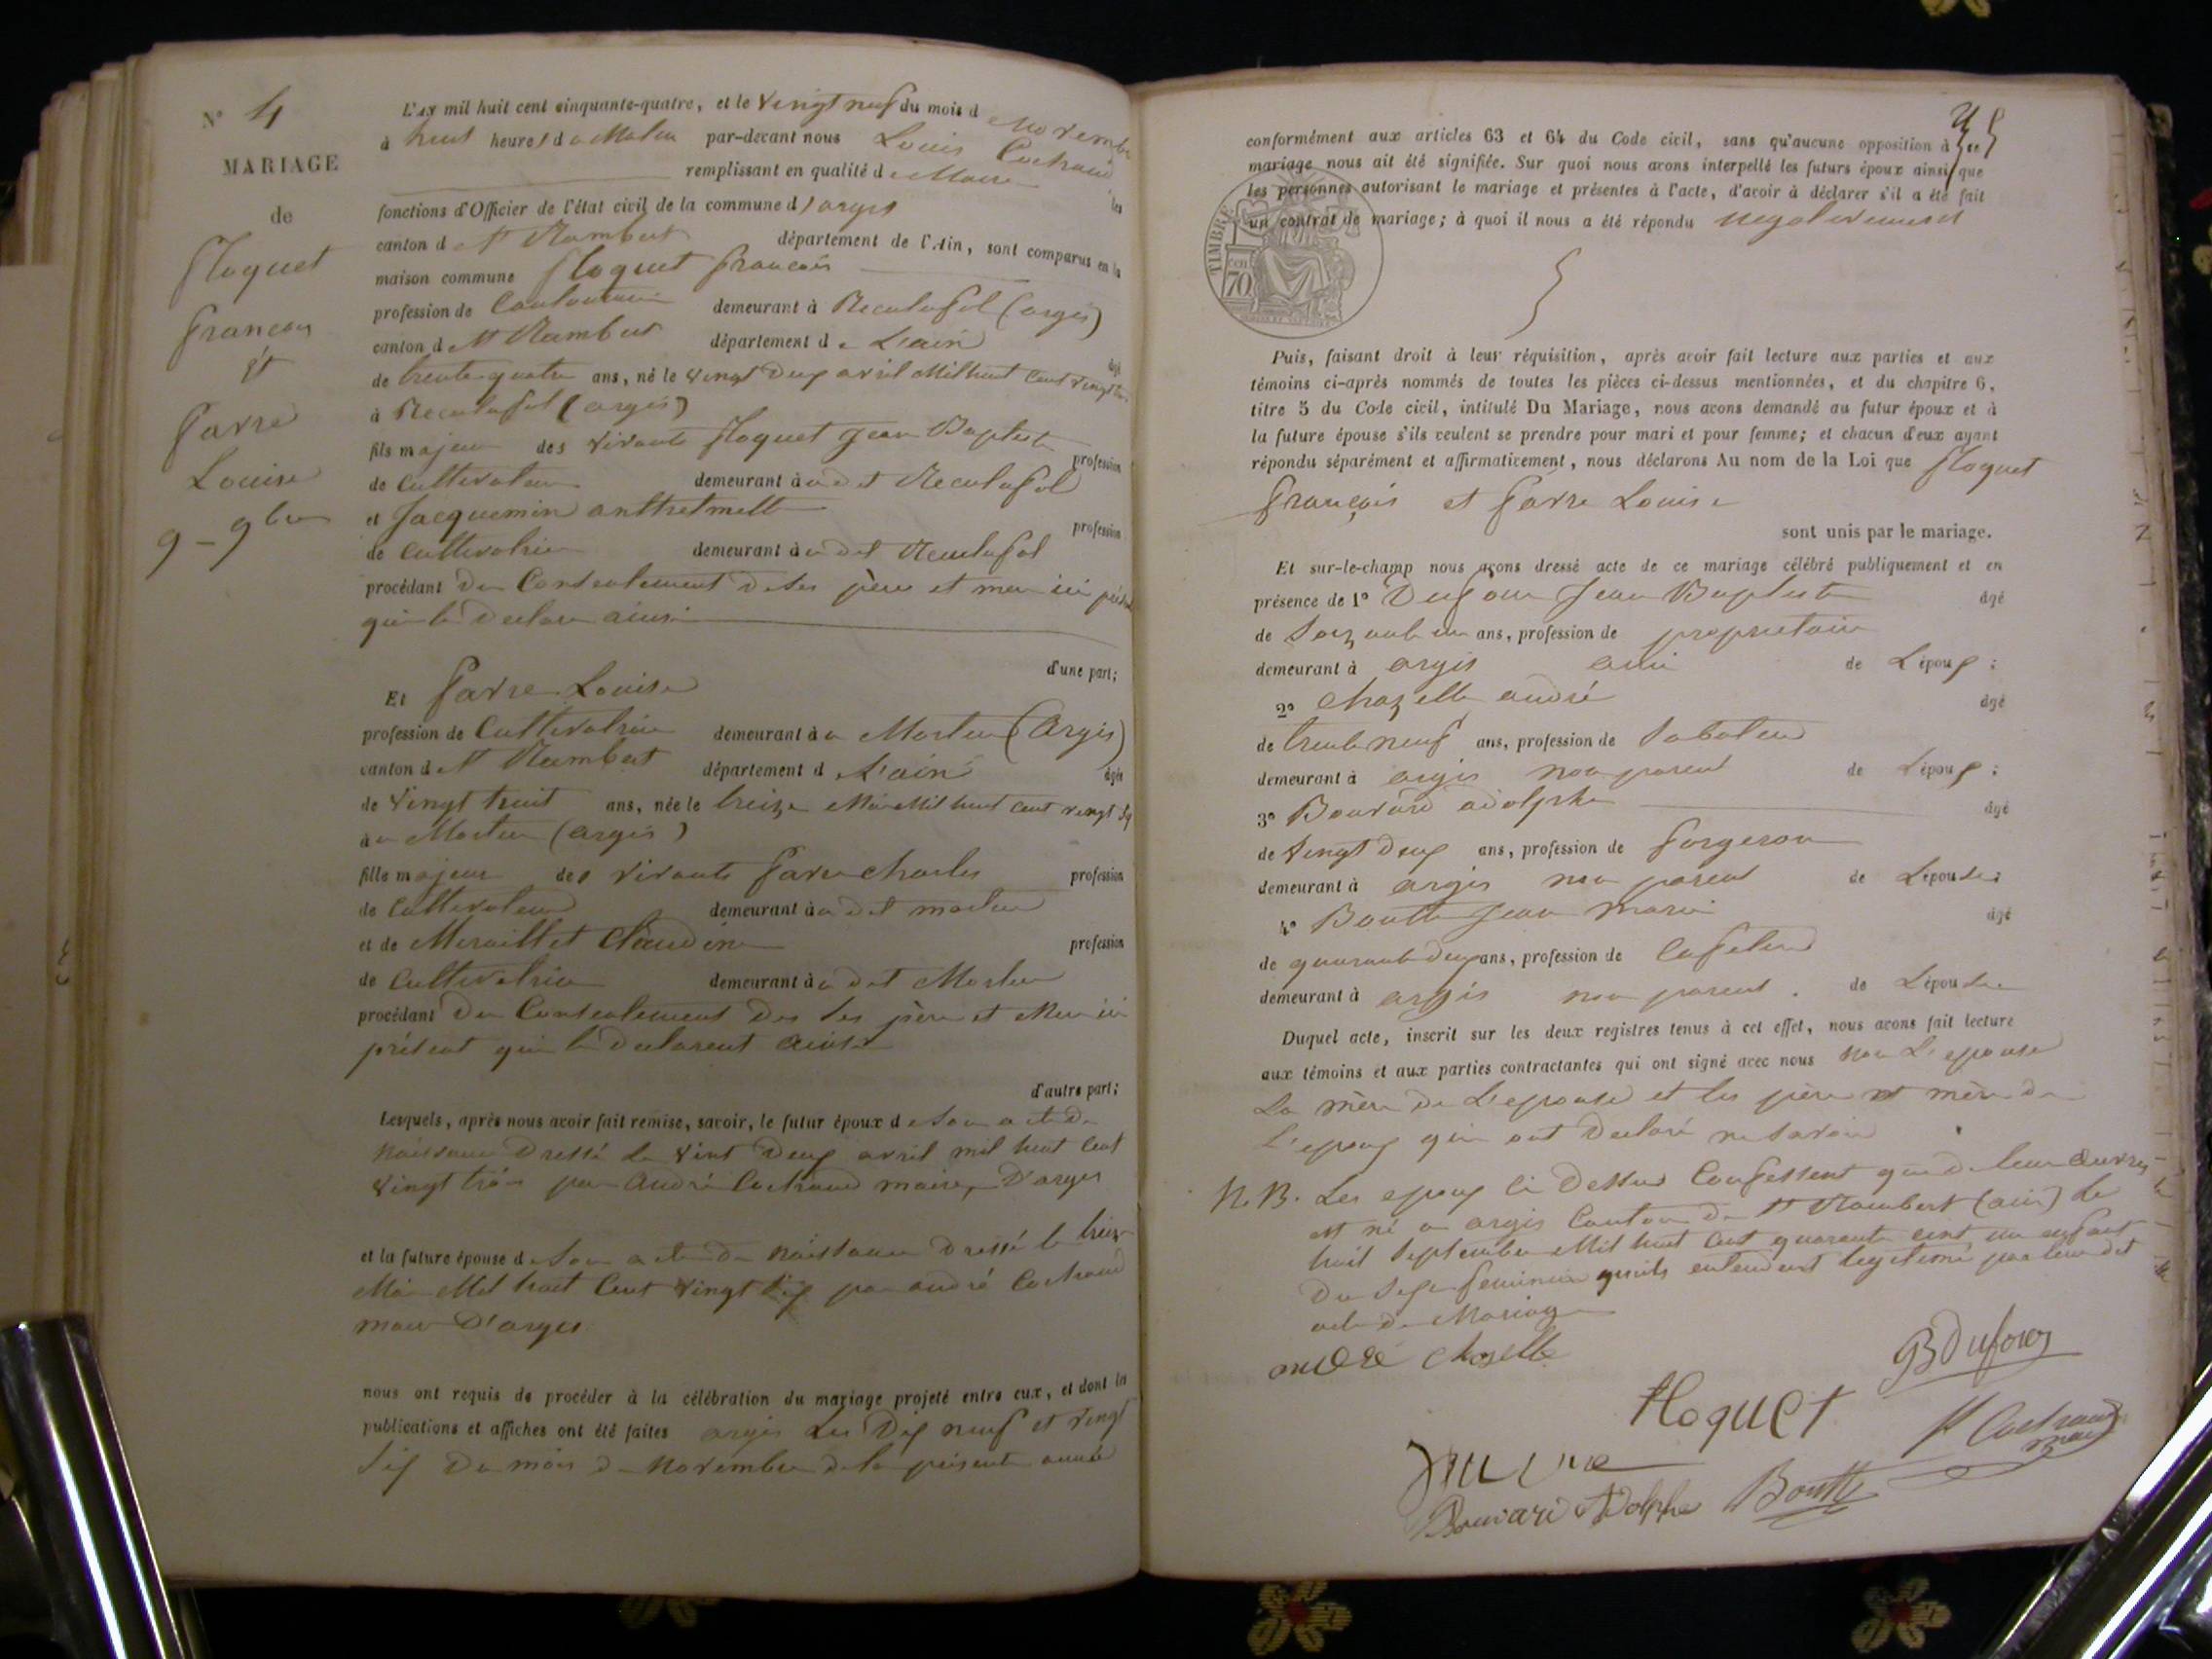 N° 4
MARIAGE
de
floquet
francois
Et
favre
Louise
9 - 9bre
L'AN mil huit cent cinquante-quatre, et le Vingt neuf du mois d Novembre
à heures du Matin par-devant nous Louis Cochand
remplissant en qualité de Maire les
fonctions d'Officier de l'état civil de la commune d'argis
canton de St Rambert département de l'Ain, sont comparus en la
maison commune floquet francois
profession de demeurant à Reculafol (argis)
canton de St Rambert département de L'ain âgé
de trente quatre ans, né le vingt deux avril Mil huit Cent vingt
à Reculafol (argis)
fils majeur des vivants floquet jean Baptiste profession
de Cultivateur demeurant à udit Reculafol
et Jacquemin anthelmette profession
de cultivatrice demeurant à udit Reculafol
procédant Du Consentement De ses père et mere ici
qui le Declare ainsi
d'une part;
Et favre Louise
profession de Cultivatrice demeurant à u Morlieu (Argis)
canton de St Rambert département de L'ain âgée
de Vingt huit ans, née le treize Mai Mil huit cent vingt six
à u Morlieu (argis)
fille majeure des vivants favre charles profession
de Cultivateur demeurant à udit morlieu
et de Claudine profession
de Cultivatrice demeurant à udit Morlieu
procédant Du Consentement Des ses père et Mere ici
présent qui le Declarent ainsi
d'autre part;
Lesquels, après nous avoir fait remise, savoir, le futur époux de son acte de
naissance Dressé le vint Deux avril mil huit Cent
vingt trois par André Cochand maire, D'argis
et la future épouse de son acte de naissance Dressé le treize
Mai Mil huit Cent vingt six par andré Cochand
maire D'argis
nous ont requis de procéder à la célébration du mariage projeté entre eux, et dont la
publications et affiches ont été faites argis Les Dix neuf et vingt
six Du mois de Novembre de la présente année
conformément aux articles 63 et 64 du Code civil, sans qu'aucune opposition à ce
mariage nous ait été signifiée. Sur quoi nous avons interpellé les futurs époux ainsi que
les personnes autorisant le mariage et présentes à l'acte, d'avoir à déclarer s'il a été fait
un contrat de mariage; à quoi il nous a été répondu negativement
TIMBRE
70
Puis, faisant droit à leur réquisition, après avoir fait lecture aux parties et aux
témoins ci-après nommés de toutes les pièces ci-dessus mentionnées, et du chapitre 6,
titre 5 du Code civil, intitulé Du Mariage, nous avons demandé au futur époux et à
la future épouse s'ils veulent se prendre pour mari et pour femme; et chacun d'eux ayant
répondu séparément et affirmativement, nous déclarons Au nom de la Loi que floquet
françois et favre Louise
sont unis par le mariage.
Et sur-le-champ nous avons dressé acte de ce mariage célébré publiquement et en
présence de 1° Dufour Jean Baptiste âgé
de ans, profession de proprietaire
demeurant à argis ami de L'époux;
2° Chazelle andré âgé
de trente neuf ans, profession de Saboteur
demeurant à argis non parent de L'époux;
3° Bouvard adolphe âgé
de vingt deux ans, profession de forgeron
demeurant à argis non parent de L'épouse;
4° Boutte Jean Marie âgé
de quarante deux ans, profession de Cafetier
demeurant à argis non parent. de L'épouse
Duquel acte, inscrit sur les deux registres tenus à cet effet, nous avons fait lecture
aux témoins et aux parties contractantes qui ont signé avec nous non L'epouse
La mère de L'epouse et les père et mère de
L'epoux qui ont Declaré ne savoir
N.B. Les epoux ci Dessus Confessent que de leur œuvres
est né a argis Canton de St Rambert (ain) le
huit Septembre Mil huit cent quarante cint un enfant
Du sexe feminin qu'ils entendent legitimé par leur dit
acte de Mariage
andré chazelle
B Dufour
floquet
L Cochand
maire
Bouvard Adolphe Boutte